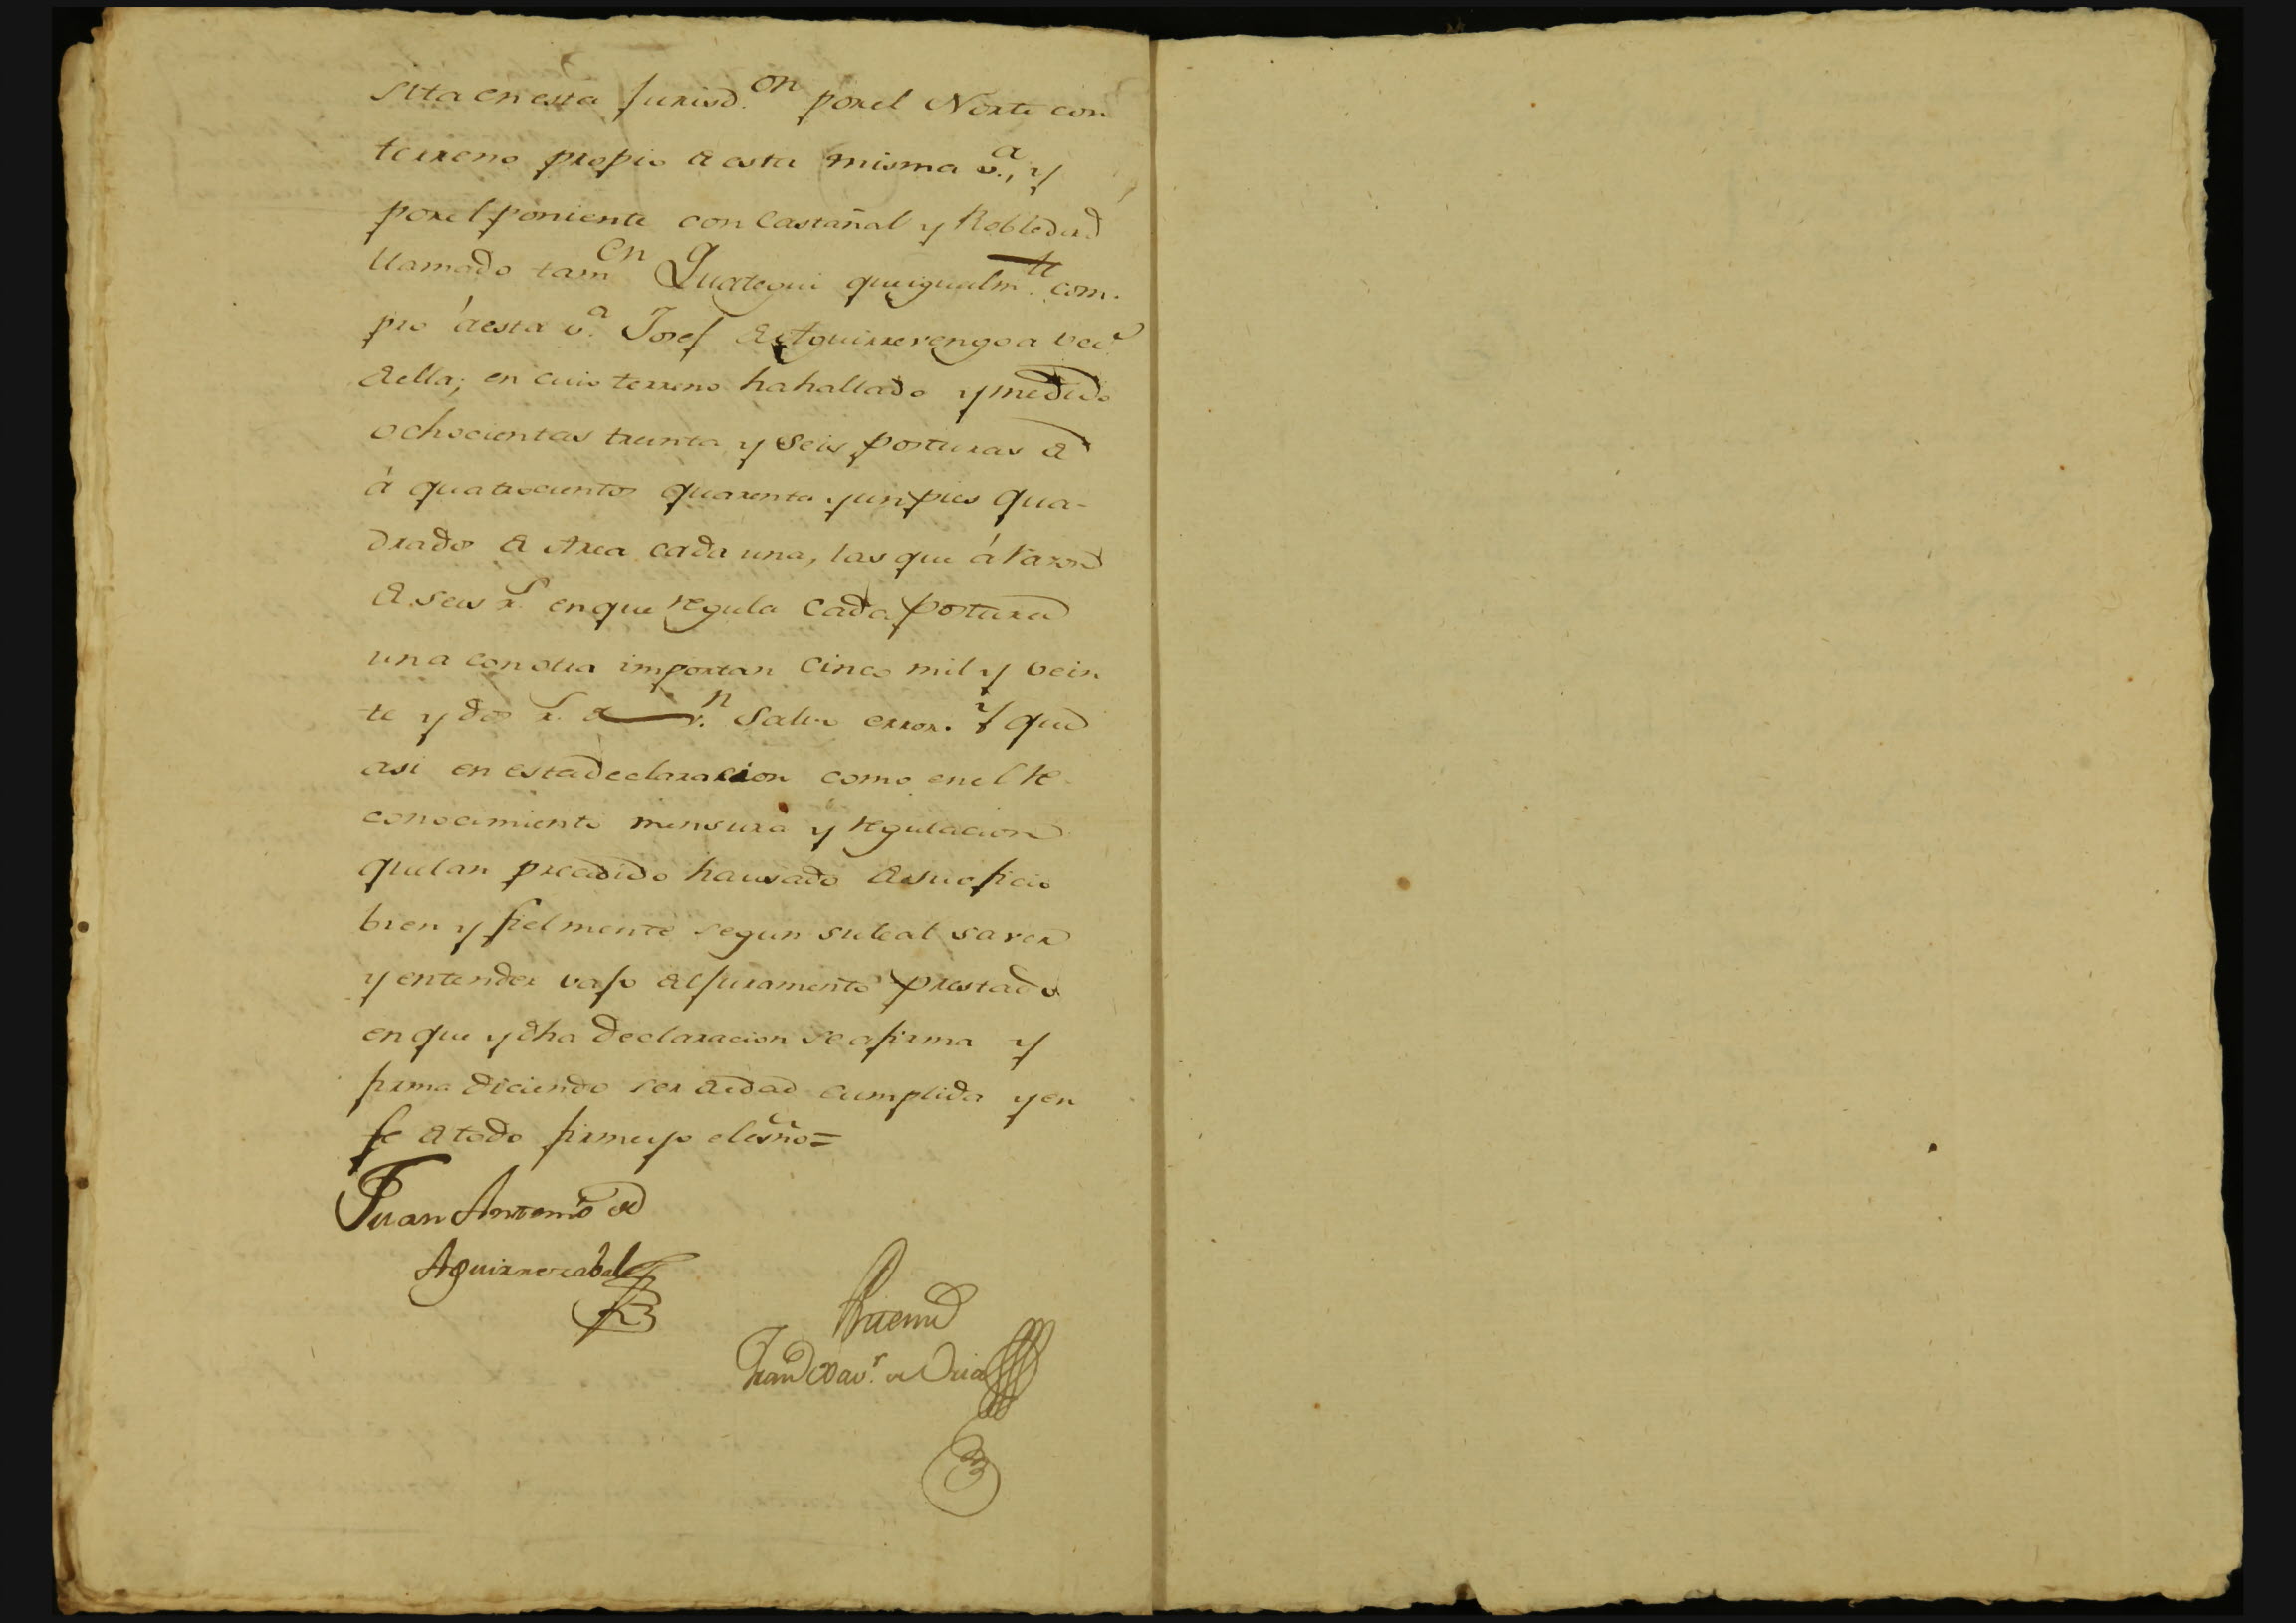 sita en esta Jurisd.on por el Norte con
terreno propio de esta misma v.a, y
por el poniente con Castañal y Robledad
llamado tamen Guategui que igualm.te com-
pró á esta v.a Josef de Aguirrevengoa vec.o
de ella; en cuio terreno ha hallado y medido
ochocientas treinta y seis posturas de
á quatrocientos quarenta y un pies qua-
drados de Area cada una, las que á razon
de seis r.s en que regula cada postura
una con otra importan Cinco mil y vein
te y dos r.s de v.n salvo error. Y que
asi en esta declaracion como en el re-
conocimiento mensura y regulacion
que lan precedido ha usado de su oficio
bien y fielmente segun su leal saver
y entender vajo del juramento prestado
en que y dha declaracion se afirma y
firma diciendo ser de edad cumplida y en
fe de todo firme yo el esño=
Juan Antonio de
Aguirrezabal
Antemi
Fran Xav.r de Oria